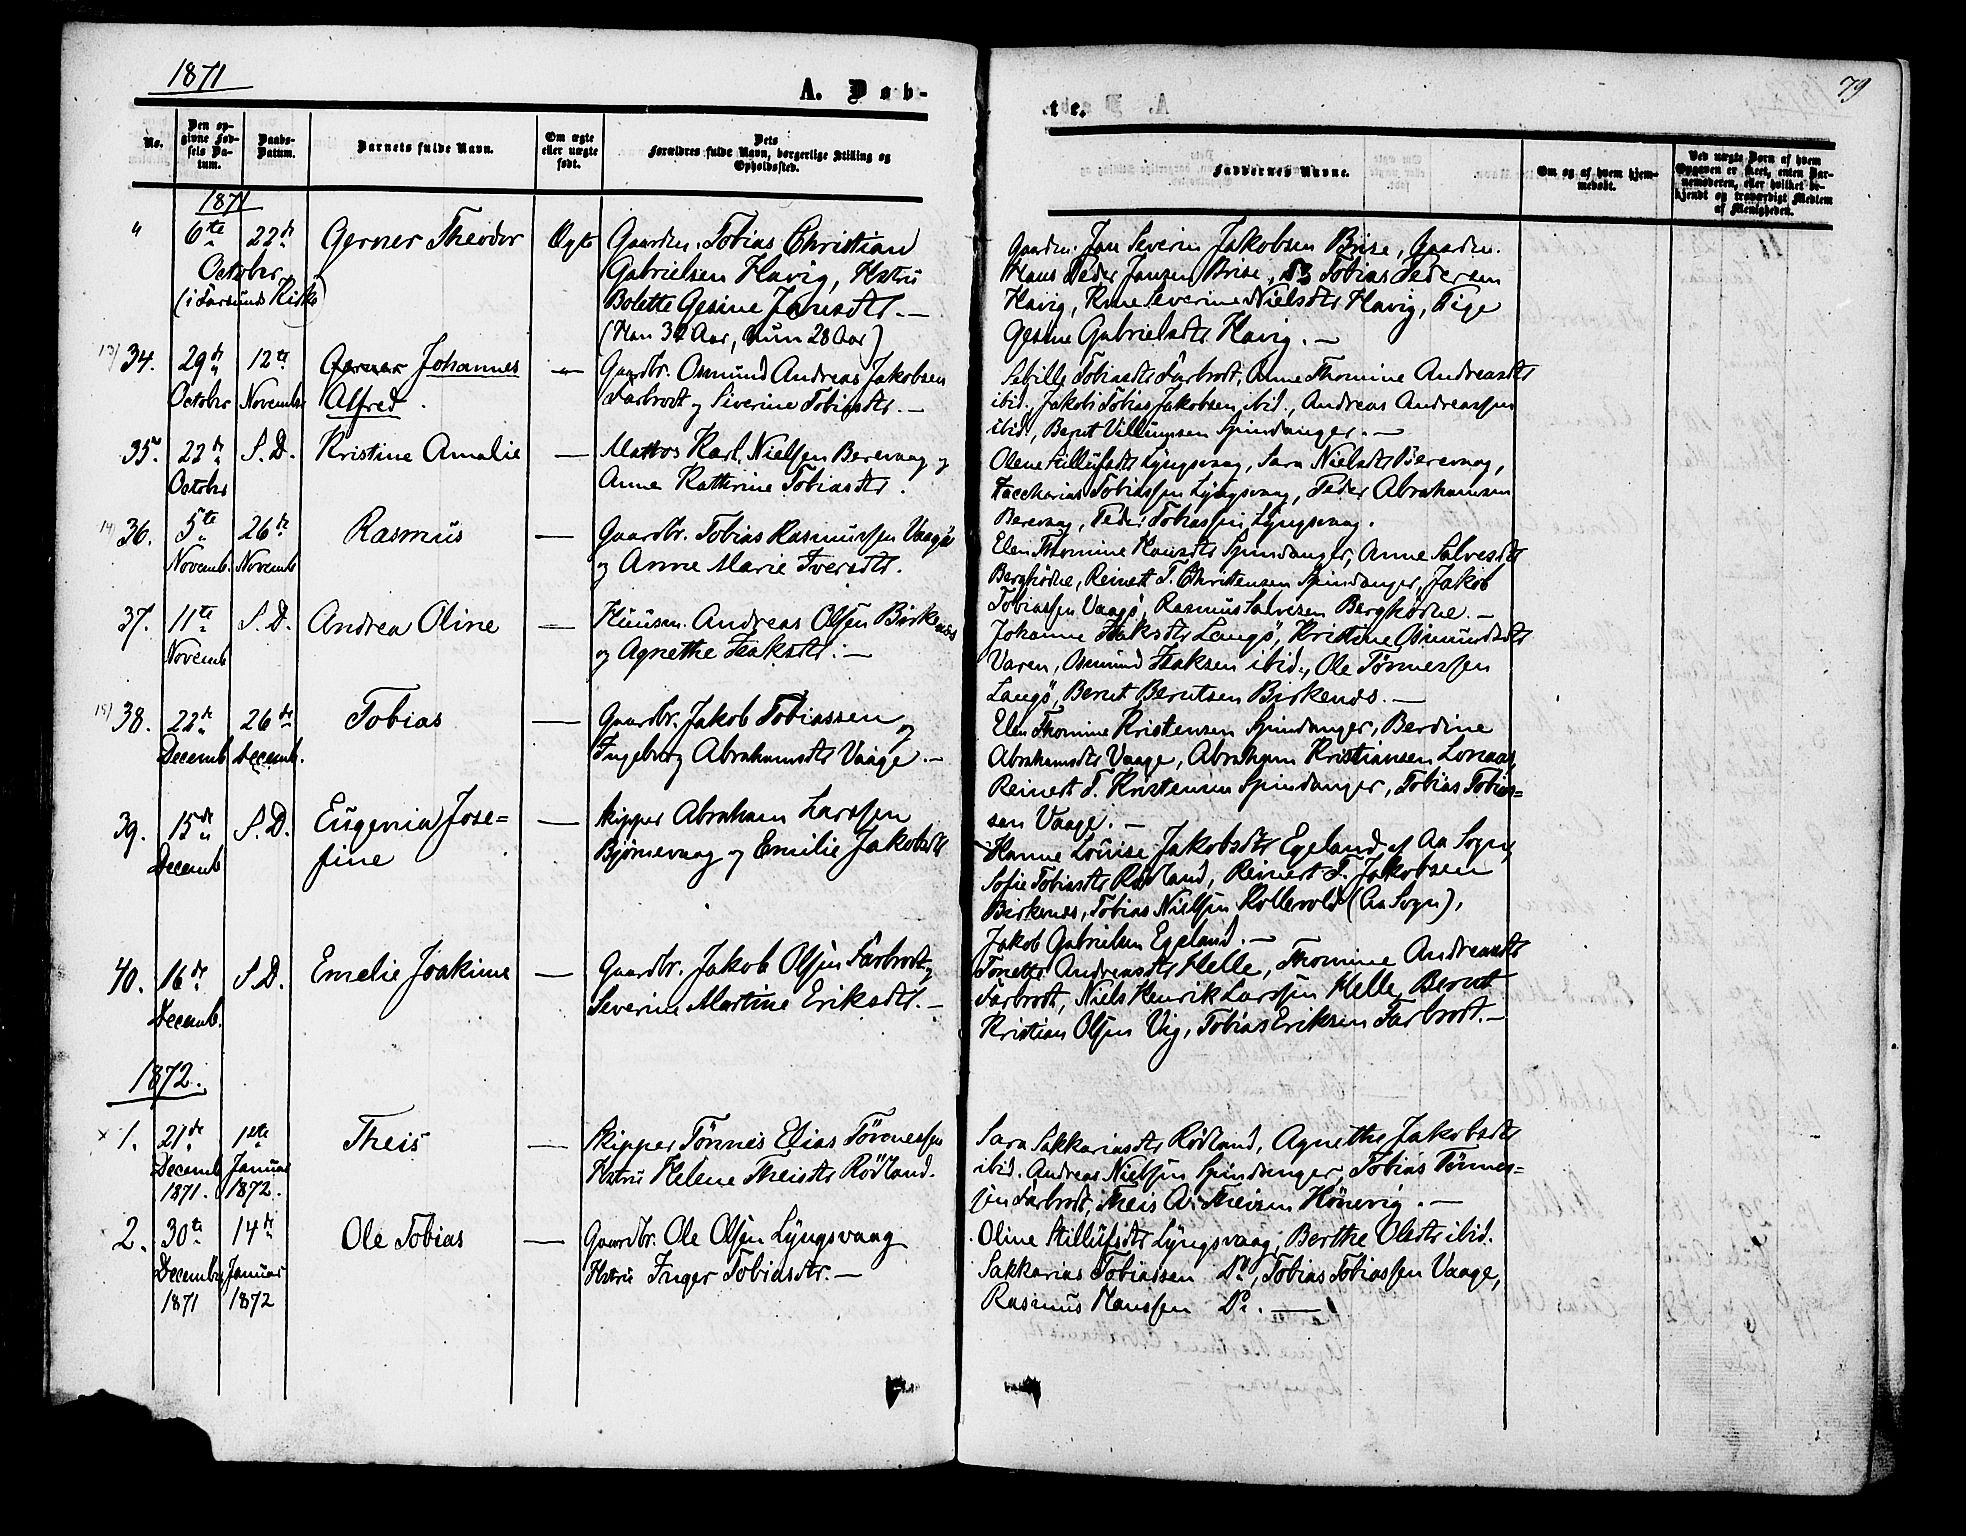 1871
A. Døb-
No.
Den op-
givne Fød-
sels Da-
tum.
Daabs-
Datum.
Barnets fulde Navn.
Om ægte
eller uægte
født.
Dets
Forældres fulde Navn, borgerlige Stilling og
Opholdssted.
1871
" 6te 22de Gerner Theodor Ægte Gaardm. Tobias Christian
October Gabrielsen Havig, Hstru
(i Farsunds Kirke) Bolette Gesine Jansdtr. —
(Han 32 Aar, hun 28 Aar)
13) 34. 29de 12te Gerner Johannes — Gaardbr. Osmund Andreas Jakobsen
October Novembr Alfred. Farbrodt og Siverine Tobiasdtr. —
35. 22de S.D. Kristine Amalie — Matros Karl Nielsen Berevaag og
October Anne Kathrine Tobiasdtr.
14) 36. 5te 26de Rasmus — Gaardbr. Tobias Rasmussen Vaagø
Novemb. Novemb og Anne Marie Iversdtr.
37. 11te S.D. Andrea Oline — Huusm. Andreas Olsen Birkenes
Novemb og Agnethe Isaksdtr. —
15) 38. 22de 26de Tobias — Gaardbr. Jakob Tobiassen og
Decemb Decemb. Ingeborg Abrahamsdtr Vaage. —
39. 15de S.D. Eugenia Jose= — Skipper Abraham Larssen
Decemb fine Bjørnevaag og Emilie Jakobsdtr
40. 16de S.D. Emelie Joakime — Gaardbr. Jakob Olsen Farbrodt og
Decemb. Severine Martine Eriksdtr. —
1872.
x 1. 21de 1ste Theis — Skipper Tønnes Elias Tønnessen
Decemb Januar Hstru Helene Theisdtr Rødland.
1871. 1872.
2. 30te 14de Ole Tobias — Gaardbr. Ole Olsen Lyngsvaag
Decembr Januar Hstru Inger Tobiasdtr. —
1871 1872
79
te.
Faddernes Navne.
Om og af hvem hjem-
medøbt.
Ved uægte Børn af hvem
Opgaven er skeet, enten Bar-
nemoderen, eller hvilket be-
kjendt og troværdigt Medlem
af Menigheden.
Gaardm. Jan Severin Jakobsen Brise, Gaardm.
Hans Peder Jansen Brise, Do Tobias Pedersen
Havig, Kone Severine Nielsdtr Havig, Pige
Gesine Gabrielsdtr Havig. —
Sebille Tobiasdtr Farbrodt, Anne Thomine Andreasdtr
ibid., Jakob Tobias Jakobsen ibid., Andreas Andreassen
ibid., Bernt Villumsen Spindanger. —
Olene Stillufsdtr Lyngsvaag, Sara Nielsdtr Berevaag,
Zaccharias Tobiassen Lyngsvaag, Peder Abrahamsen
Berevaag, Peder Tobiassen Lyngsvaag.
Elen Thomine Hansdtr Spindanger, Anne Salvesdtr
Berghødne, Reinert T. Christensen Spindanger, Jakob
Tobiassen Vaagø, Rasmus Salvesen Berghødne. —
Johanne Isaksdtr Langø, Kristine Osmundsdtr
Varen, Osmund Isaksen ibid., Ole Tønnessen
Langø, Bernt Berntsen Birkenes. —
Elen Thomine Kristensen Spindanger, Berdine
Abrahamsdtr Vaage, Abraham Kristiansen Lonaas,
Reinert T. Kristensen Spindanger, Tobias Tobias=
sen Vaage. —
Hanne Louise Jakobsdtr Egeland af Aa Sogn,
Sofie Tobiasdtr Rødland, Reinert T. Jakobsen
Birkenes, Tobias Nielsen Kollevold (Aa Sogn),
Jakob Gabrielsen Egeland. —
Tonette Andreasdtr Helle, Thomine Andreasdtr
Farbrodt, Niels Henrik Larssen Helle, Bernt
Kristian Olsen Vig, Tobias Eriksen Farbrodt. —
Sara Sakkariasdtr Rødland, Agnethe Jakobsdtr
ibid. Andreas Nielsen Spindanger, Tobias Tønnes=
sen Farbrodt, Theis A. Theisen Kønevig. —
Oline Stillufsdtr Lyngsvaag, Berthe Olsdtr ibid.
Sakkarias Tobiassen Do, Tobias Tobiassen Vaage,
Rasmus Hanssen Do. —